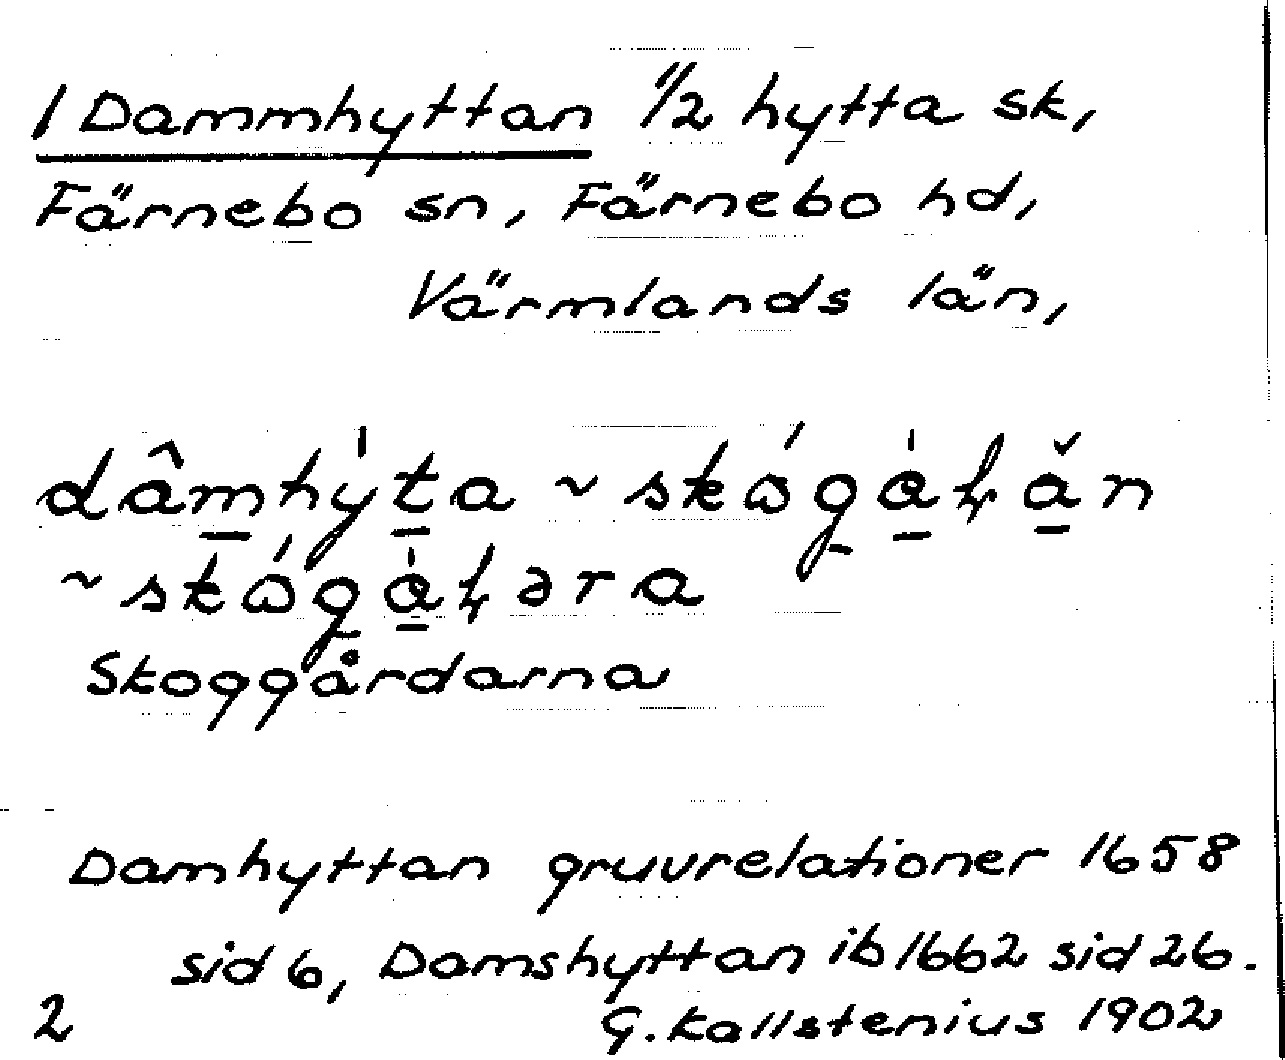 1 Dammhyttan 1/2 hytta sk,
Färnebo sn, Färnebo hd,
Värmlands län,
Skoggårdarna
Damhyttan gruvrelationer 1658
sid 6, Damshyttan ib 1662 sid 26.
2 G. Kallstenius 1902